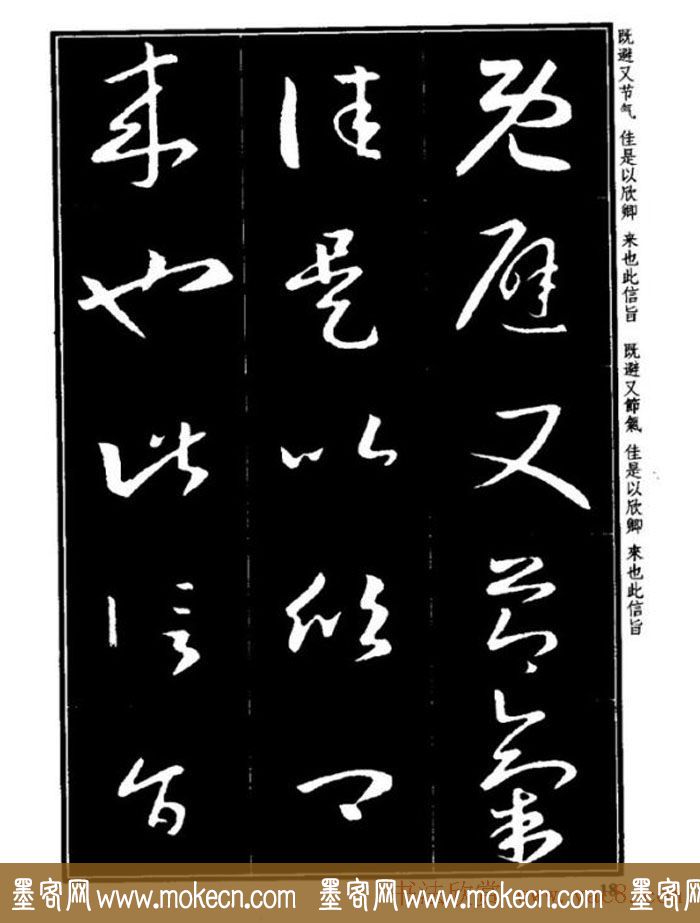 既避又節氣
佳是以欣卿
来也此信旨
既避又节气 佳是以欣卿 来也此信旨
既避又節氣 佳是以欣卿 來也此信旨
18
墨客网 www.mokecn.com 墨客网 www.mokecn.com 墨客网 www.mokecn.com
书法欣赏